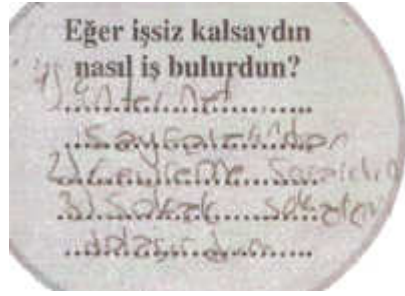 Eğer işsiz kalsaydın
nasıl iş bulurdun?
1) İnternet
sayfalarından
2) Çevreme sorardım
3) Sokak sokak
dolaşırdım